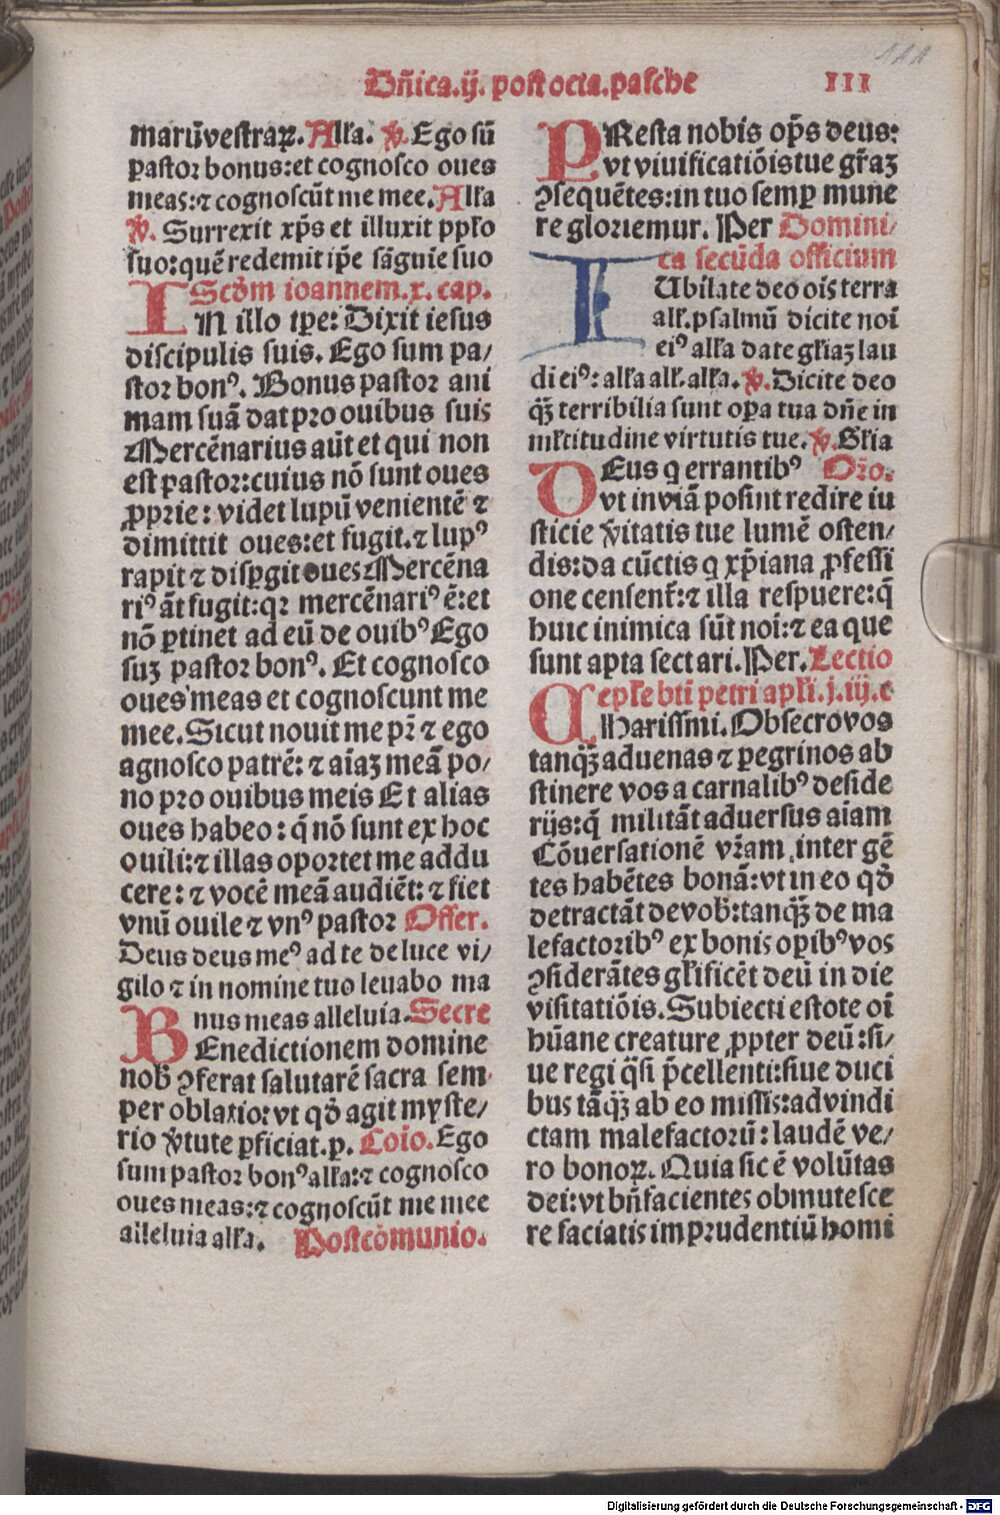 Dn̄ica.ij. post octa.pasche
III
111
marū vestraꝝ. Alľa. ℣. Ego sū
pastor bonus: et cognosco oues
meas: ⁊ cognoscūt me mee. Alľa
℣. Surrexit xp̄s et illuxit ppľo
suo: quē redemit ip̄e sāguie suo
Scd̄m ioannem.x. cap.
IN illo tp̄e: Dixit iesus
discipulis suis. Ego sum pa/
stor bonꝰ. Bonus pastor ani
mam suā dat pro ouibus suis
Mercēnarius aūt et qui non
est pastor: cuius nō sunt oues
ꝓprie: videt lupū venientē ⁊
dimittit oues: et fugit. ⁊ lupꝰ
rapit ⁊ disꝑgit oues Mercēna
riꝰ āt fugit: qꝛ mercēnariꝰ ē: et
nō ꝑtinet ad eū de ouibꝰ Ego
suꝫ pastor bonꝰ. Et cognosco
oues meas et cognoscunt me
mee. Sicut nouit me pr̄ ⁊ ego
agnosco patrē: ⁊ aiaꝫ meā po/
no pro ouibus meis Et alias
oues habeo: q̄ nō sunt ex hoc
ouili: ⁊ illas oportet me addu
cere: ⁊ vocē meā audiēt: ⁊ fiet
vnū ouile ⁊ vnꝰ pastor Offer.
Deus deus meꝰ ad te de luce vi/
gilo ⁊ in nomine tuo leuabo ma
nus meas alleluia. Secre
BEnedictionem domine
nob̄ ꝯferat salutarē sacra sem
per oblatio: vt qd̄ agit myste/
rio v̄tute ꝑficiat.p. Coīo. Ego
sum pastor bonꝰ alľa: ⁊ cognosco
oues meas: ⁊ cognoscūt me mee
alleluia alľa. Postcōmunio.
PResta nobis op̄s deus:
vt viuificatiōis tue gr̄aꝫ
ꝯsequētes: in tuo semꝑ mune
re gloriemur. Per Domini/
ca secūda officium
IUbilate deo oīs terra
alľ. psalmū dicite noī
eiꝰ alľa date gľiaꝫ lau
di eiꝰ: alľa alľ. alľa. ℣. Dicite deo
qꝫ̄ terribilia sunt oꝑa tua dn̄e in
mľtitudine virtutis tue. ℣. Gľia
DEus q errantibꝰ Oŕo.
vt in viā posint redire iu
sticie v̄itatis tue lumē osten/
dis: da cūctis q xp̄iana ꝓfessi
one censent̄: ⁊ illa respuere: q̄
huic inimica sūt noī: ⁊ ea que
sunt apta sectari. Per. Lectio
epľe bti̅ petri apľi.j.iij.c
CHarissimi. Obsecro vos
tanqꝫ̄ aduenas ⁊ ꝑegrinos ab
stinere vos a carnalibꝰ deside
rijs: q̄ militāt aduersus aīam
Cōuersationē vr̄am inter gē
tes habētes bonā: vt in eo qd̄
detractāt de vob̄: tanqꝫ̄ de ma
lefactoribꝰ ex bonis oꝑibꝰ vos
ꝯsiderātes gľificēt deū in die
visitatiōis. Subiecti estote oī
hūane creature ꝓpter deū: si/
ue regi q̄si p̄cellenti: siue duci
bus tāqꝫ̄ ab eo missis: ad vindi
ctam malefactorū: laudē ve/
ro bonoꝝ. Quia sic ē volūtas
dei: vt bn̄facientes obmutesce
re faciatis imprudentiū homi
Digitalisierung gefördert durch die Deutsche Forschungsgemeinschaft - DFG